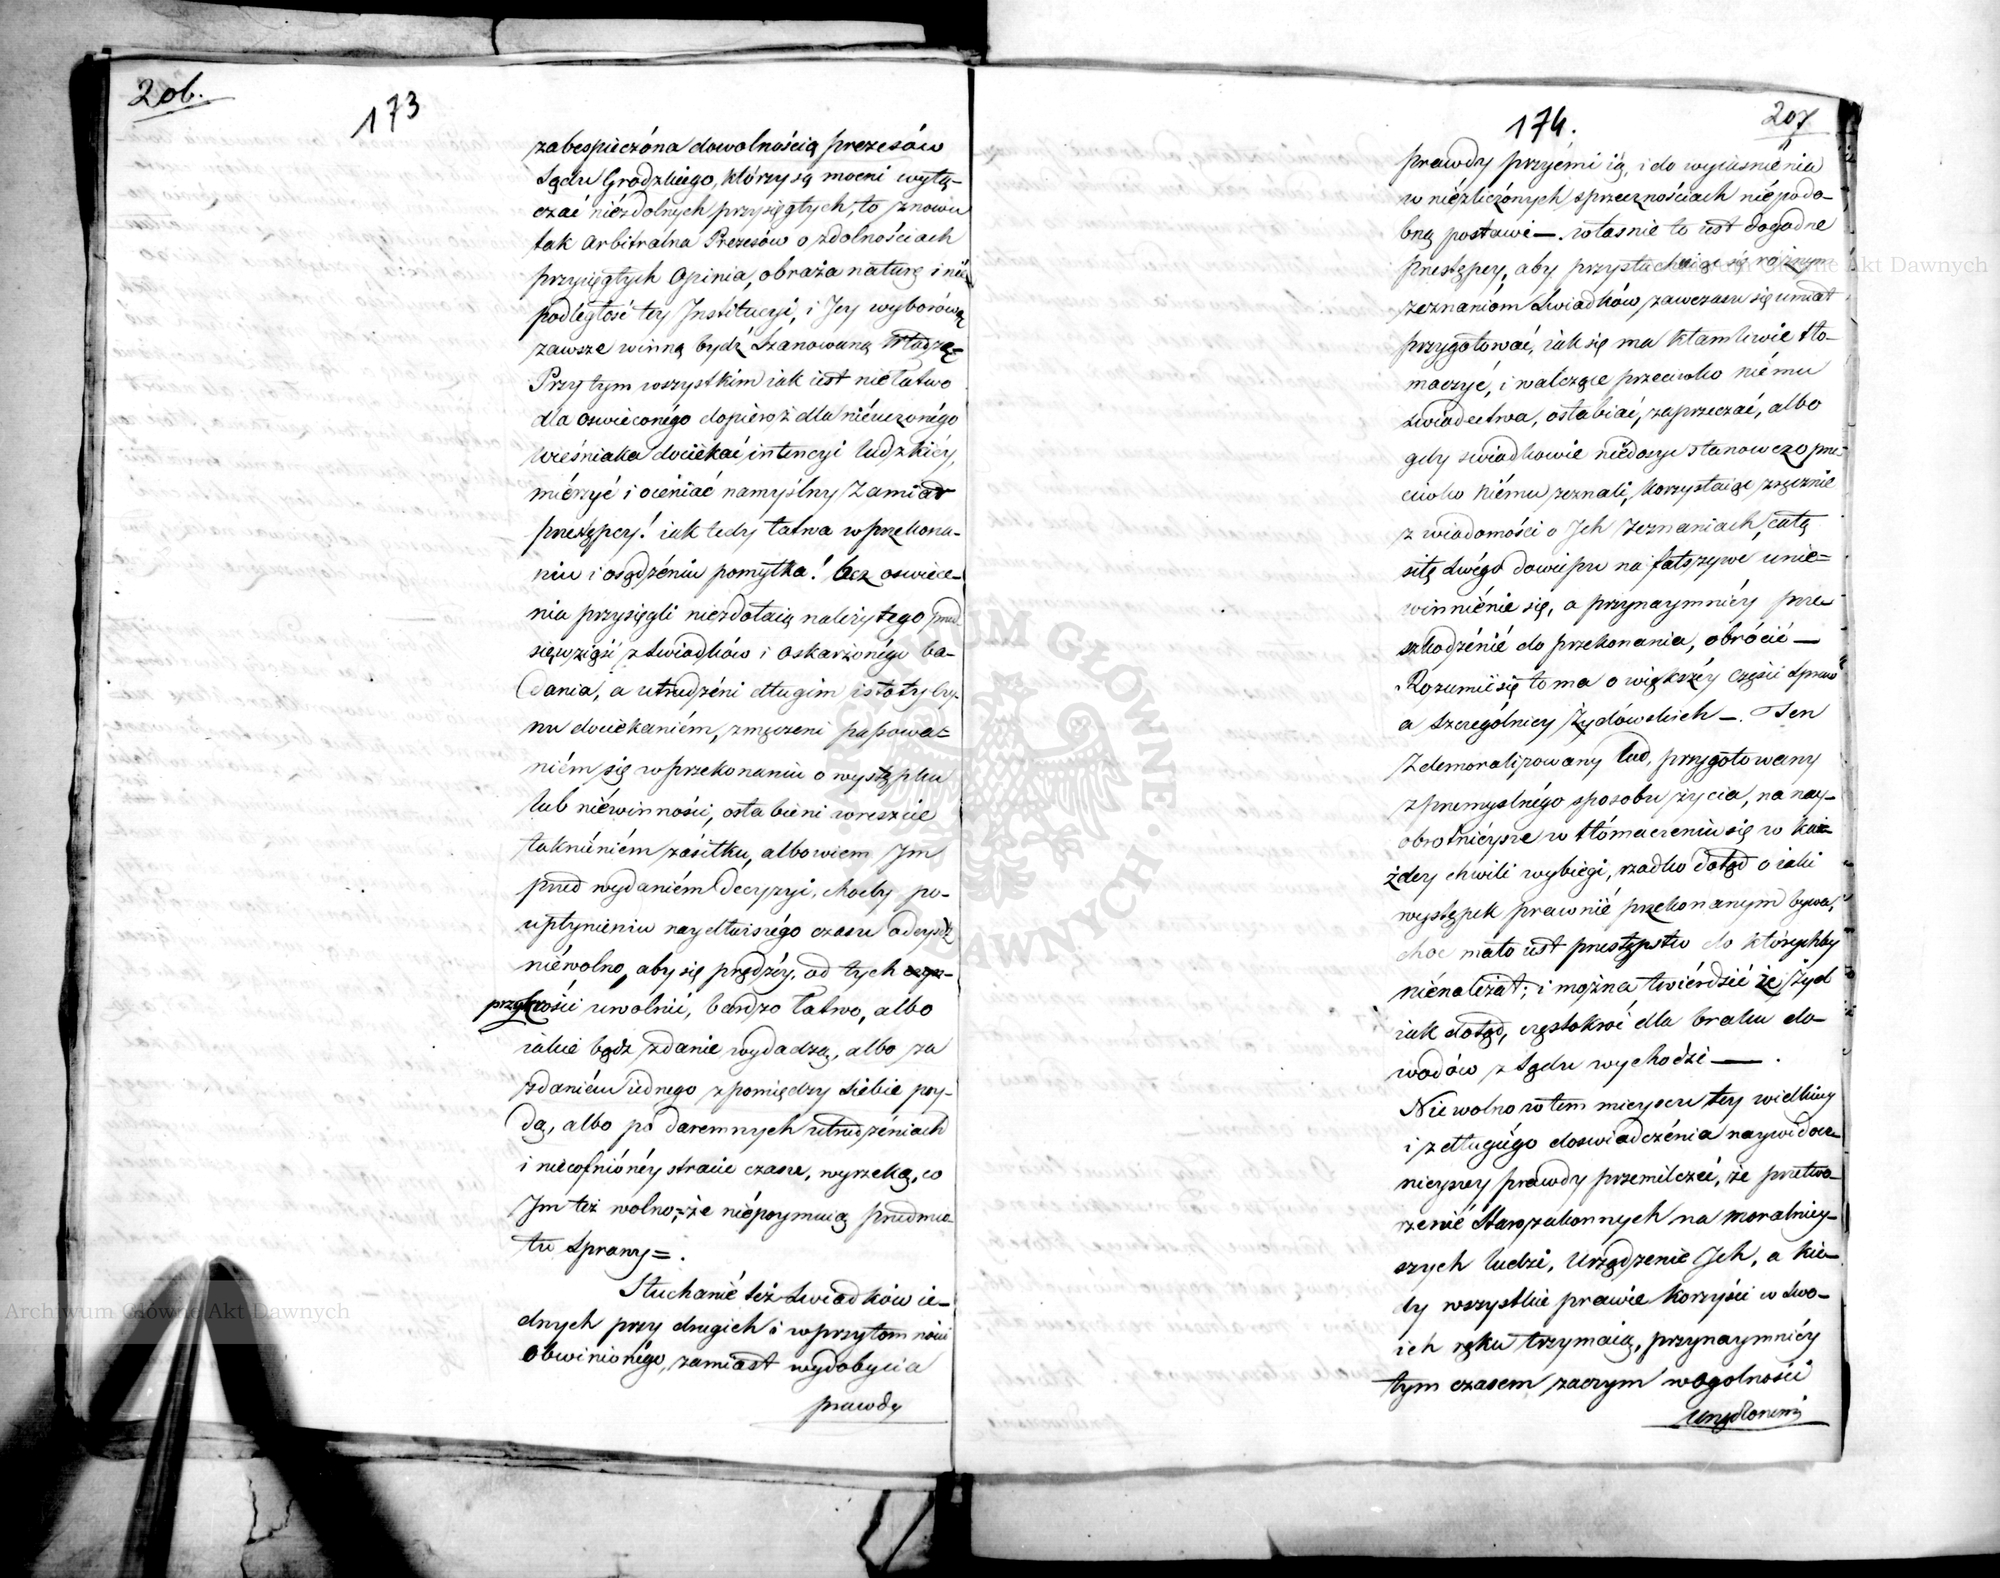 206.
173
zabespieczóna dowolnością prezesów
Sądu Grodzkiego, którzy są mocni wyłą-
czać niézdolnych przysięgłych, to znowu
tak Arbitralna Prezesów o zdolnościach
przysięgłych Opinia, obraża naturę i nie
podległość tey Instytucyi, i Jey wyborową
zawsze winną bydź Szanowaną Władzę=
Przy tym wszystkim iak iest nie łatwo
dla oswieconégo dopieroż dla niéuczonégo
Wieśniaka dociekać intencyi ludzkiéy,
miérzyć i oceniać namyślny Zamiar
przestępcy! iak tedy łatwa w przekona-
niu i osądzéniu pomyłka! bez oswiece-
nia przysięgli niezdołaią należytego przed
sięwziąść z Swiadków i Oskarżonégo ba-
dania, a utrudzéni długim istoty czy-
nu dociekaniém, zmęczeni passowa=
niém się w przekonaniu o występku
lub niéwinności, osłabieni wreszcie
łaknieniém zásiłku, albowiem Im
przed wydaniém Décyzyi, choćby po-
upłynieniu naydłuższégo czasu odeyśdź
niéwolno, aby się prędzéy, od tych
przykrości uwolnić, bardzo łatwo, albo
iakie bądz zdanie wydadzą, albo za
zdaniém iednego z pomiędzy Siebie poy-
dą, albo po daremnych utrudzéniach
i niecofnionéy stracie czasu, wyrzeką, co
Im też wolno,=że niépoymuią przedmio-
tu Sprawy=.
Słuchanié też Swiadków ie-
dnych przy drugich i w przytomności
Obwinionégo, zamiast wydobycia
prawdy
174.
207
prawdy przyćmi ią, i do wyiasniénia
w niézliczónych sprzecznościach niépodo-
bną postawi—. własnie to iest dogodne
Przestępcy, aby przysłuchaiąc się różnym
zeznaniom Swiadków, zawczasu się umiał
przygotować, iak się ma kłamliwie tło-
maczyć, i walczące przeciwko niému
swiadectwa, osłabiać, zaprzeczać, albo
gdy swiadkowie niedosyc stanowczo prze-
ciwko Niému zeznali, korzystaiąc zręcznie
z wiadomości o Jch zeznaniach, całą
siłę Swégo dowcipu na fałszywe unie=
winniénie się, a przynaymniéy prze-
szkodzénié do przekonania, obrócić—
Rozumié się to ma o większéy części Spraw
a Szczególniey Żydówskich—. Ten
Zdemoralizowany lud, przygotowany
z przemyslnégo sposobu życia, na nay-
obrotniéysze w tłómaczeniu się w każ
żdey chwili wybiegi, rzadko dotąd o iaki
występek prawnié przekonanym bywa,
choc mało iest przestępstw do którychby
niénależał; i można twiérdzić że Żyd
iak dotąd, częstokroć dla braku do-
wodów z Sądu wychodzi—.
Nie wolno w tem mieyscu tey wielkiey
i z długiégo doswiadczénia naywidocz-
nieyszey prawdy przemilczeć, że przetwo-
rzenié Starozakonnych na moralniey-
szych ludzi, Urządzenie Jch, a kie-
dy wszystkie prawie korzyści w Swo-
ich ręku trzymaią, przynaymniéy
tym czasem zaczym w ogolności